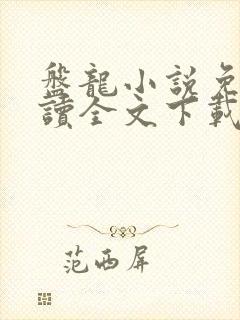 盤龍小説免
讀全文下載
范西屏